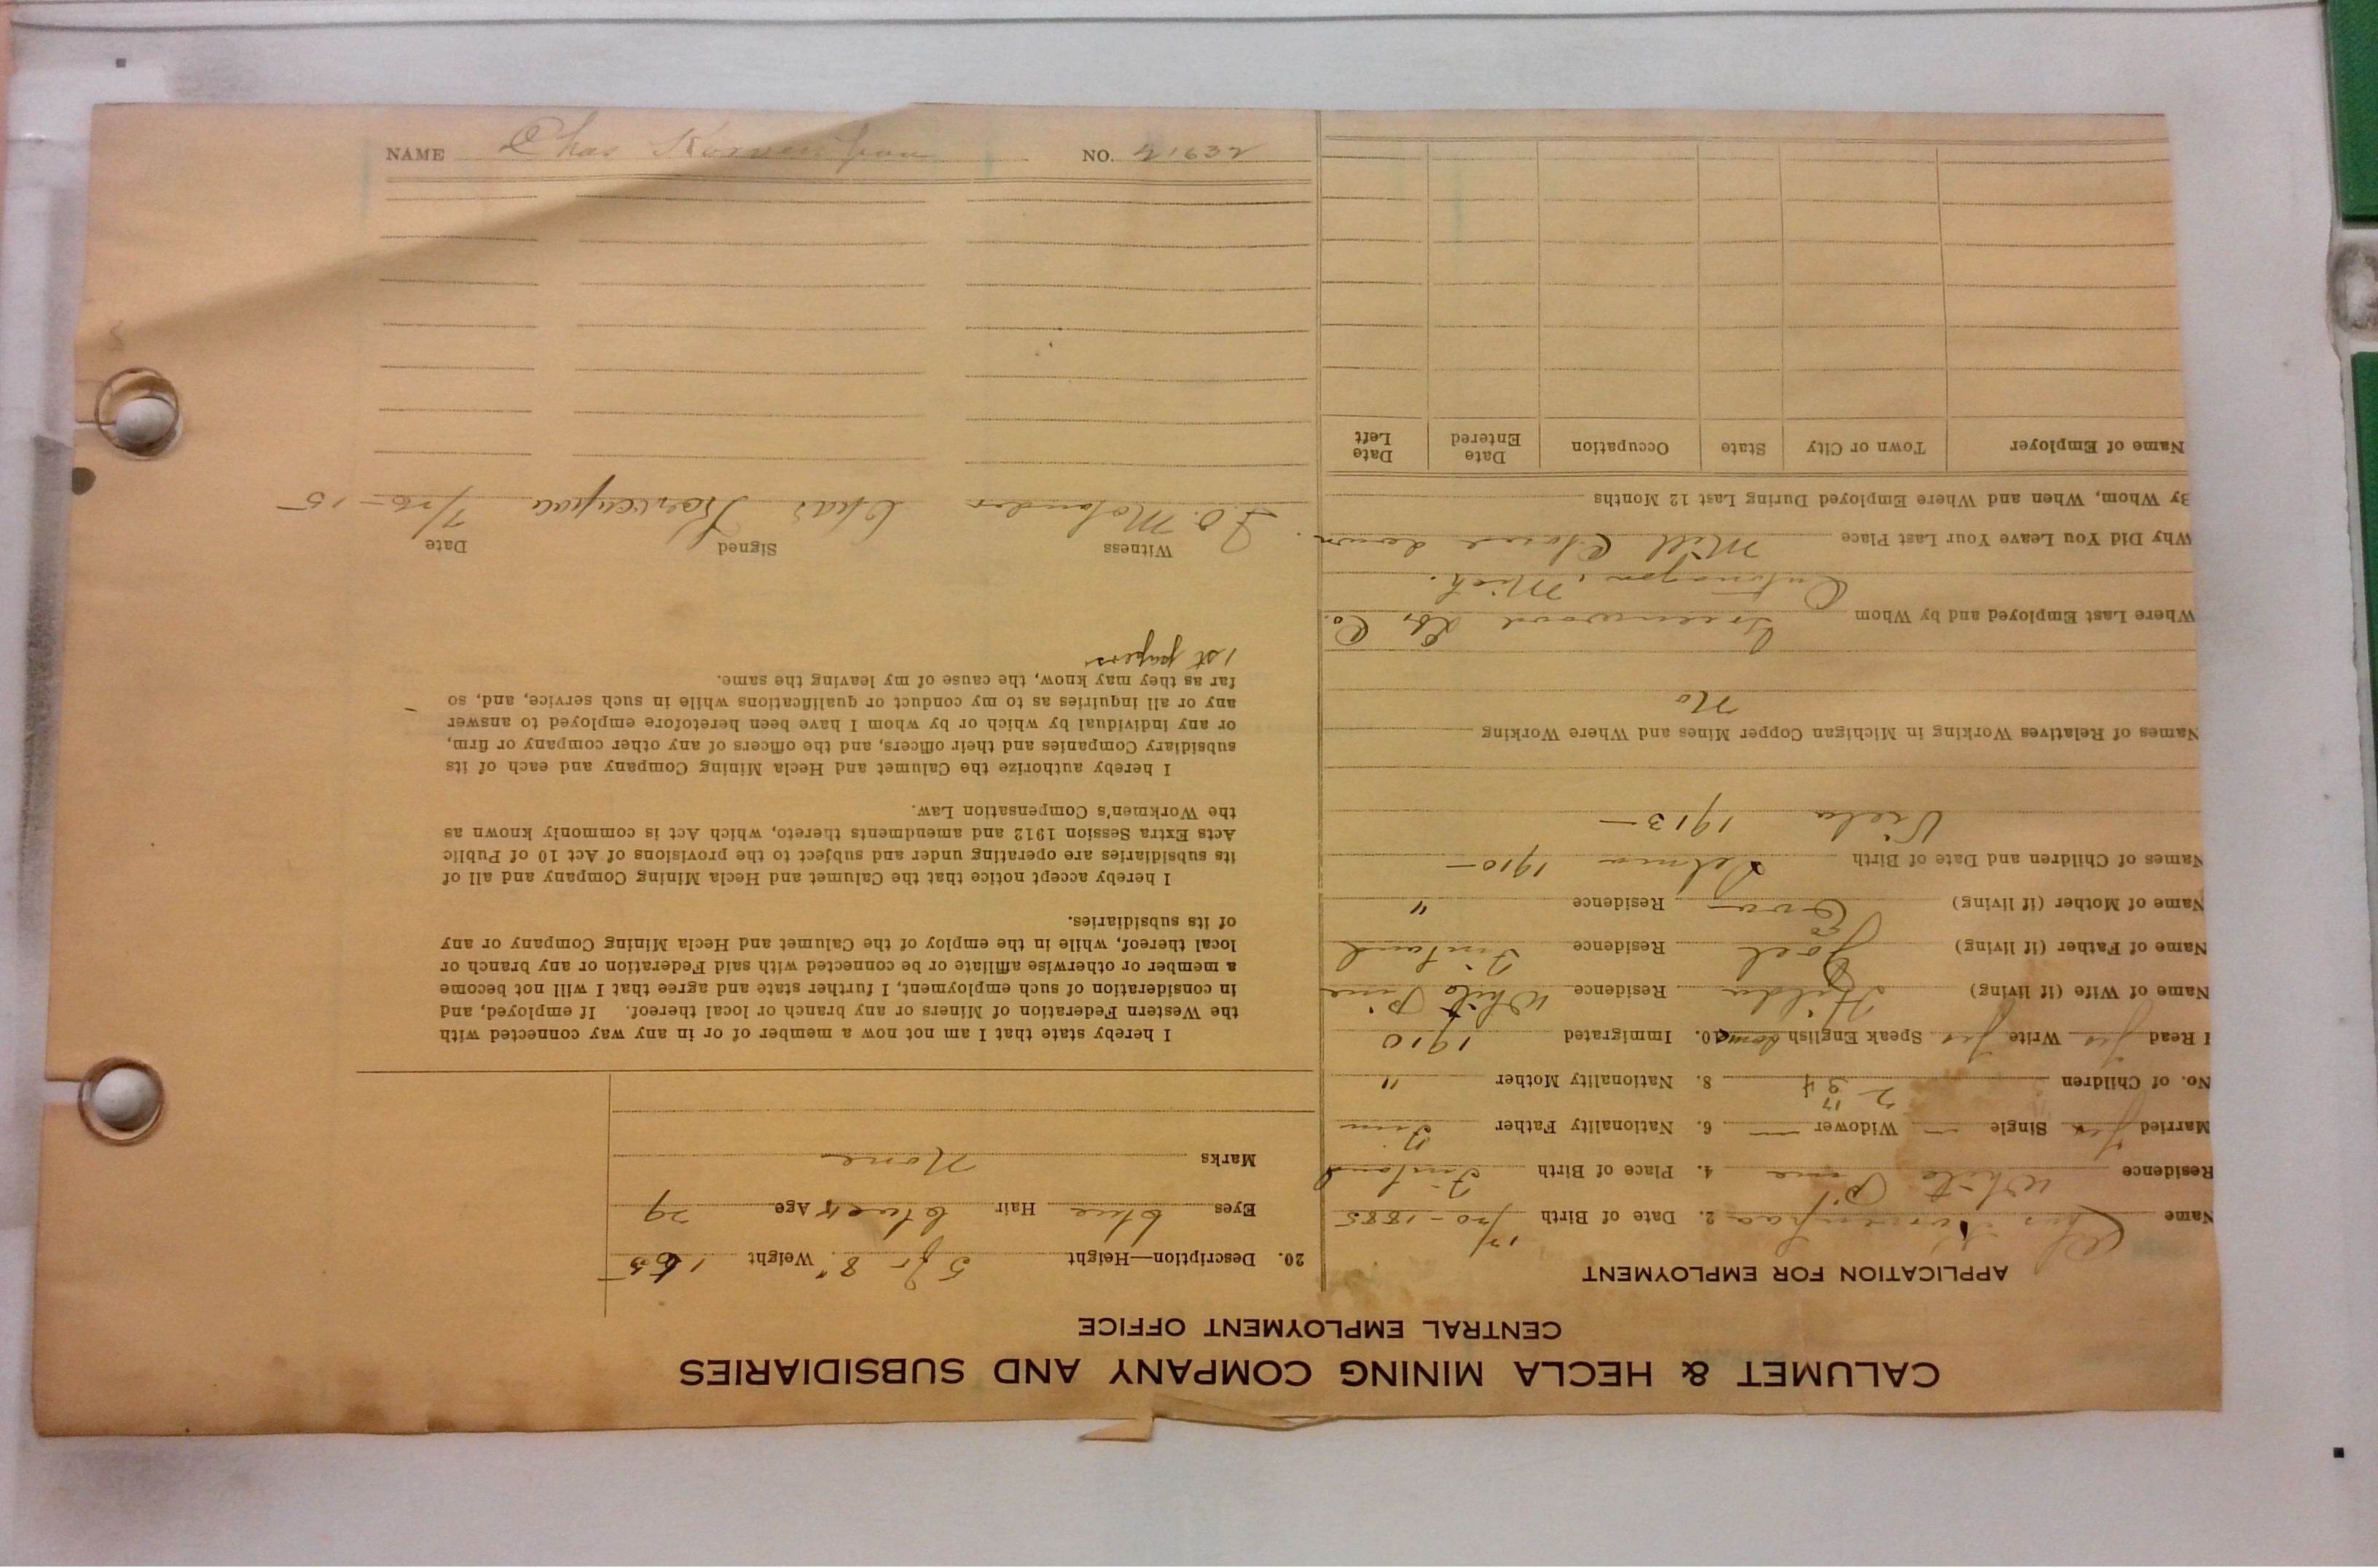 CALUMET & HECLA MINING COMPANY AND SUBSIDIARIES
CENTRAL EMPLOYMENT OFFICE
APPLICATION FOR EMPLOYMENT
Name Chas Korvenpaa 2. Date of Birth 12/20-1885
Residence White Pine 4. Place of Birth Finland
Married Yes Single — Widower — 6. Nationality Father Finn
No. of Children 2 8. Nationality Mother "
I Read Yes Write Yes Speak English Some 10. Immigrated 1910
Name of Wife (if living) Hilda Residence White Pine
Name of Father (if living) Joel Residence Finland
Name of Mother (if living) Eva Residence "
Names of Children and Date of Birth Selma 1910—
1913—
Names of Relatives Working in Michigan Copper Mines and Where Working
No
Where Last Employed and by Whom Greenwood Lbr. Co.
Ontonagon, Mich.
Why Did You Leave Your Last Place Mill Close down
By Whom, When and Where Employed During Last 12 Months
Name of Employer Town or City State Occupation Date Entered Date Left
20. Description—Height 5 ft 8" Weight 165
Eyes blue Hair Age 29
Marks None
I hereby state that I am not now a member of or in any way connected with
the Western Federation of Miners or any branch or local thereof. If employed, and
in consideration of such employment, I further state and agree that I will not become
a member or otherwise affiliate or be connected with said Federation or any branch or
local thereof, while in the employ of the Calumet and Hecla Mining Company or any
of its subsidiaries.
I hereby accept notice that the Calumet and Hecla Mining Company and all of
its subsidiaries are operating under and subject to the provisions of Act 10 of Public
Acts Extra Session 1912 and amendments thereto, which Act is commonly known as
the Workmen's Compensation Law.
I hereby authorize the Calumet and Hecla Mining Company and each of its
subsidiary Companies and their officers, and the officers of any other company or firm,
or any individual by which or by whom I have been heretofore employed to answer
any or all inquiries as to my conduct or qualifications while in such service, and, so
far as they may know, the cause of my leaving the same.
1st papers
Witness Signed Date
Molander Chas Korvenpaa 7/26-15
NAME Chas Korvenpaa NO. 21632